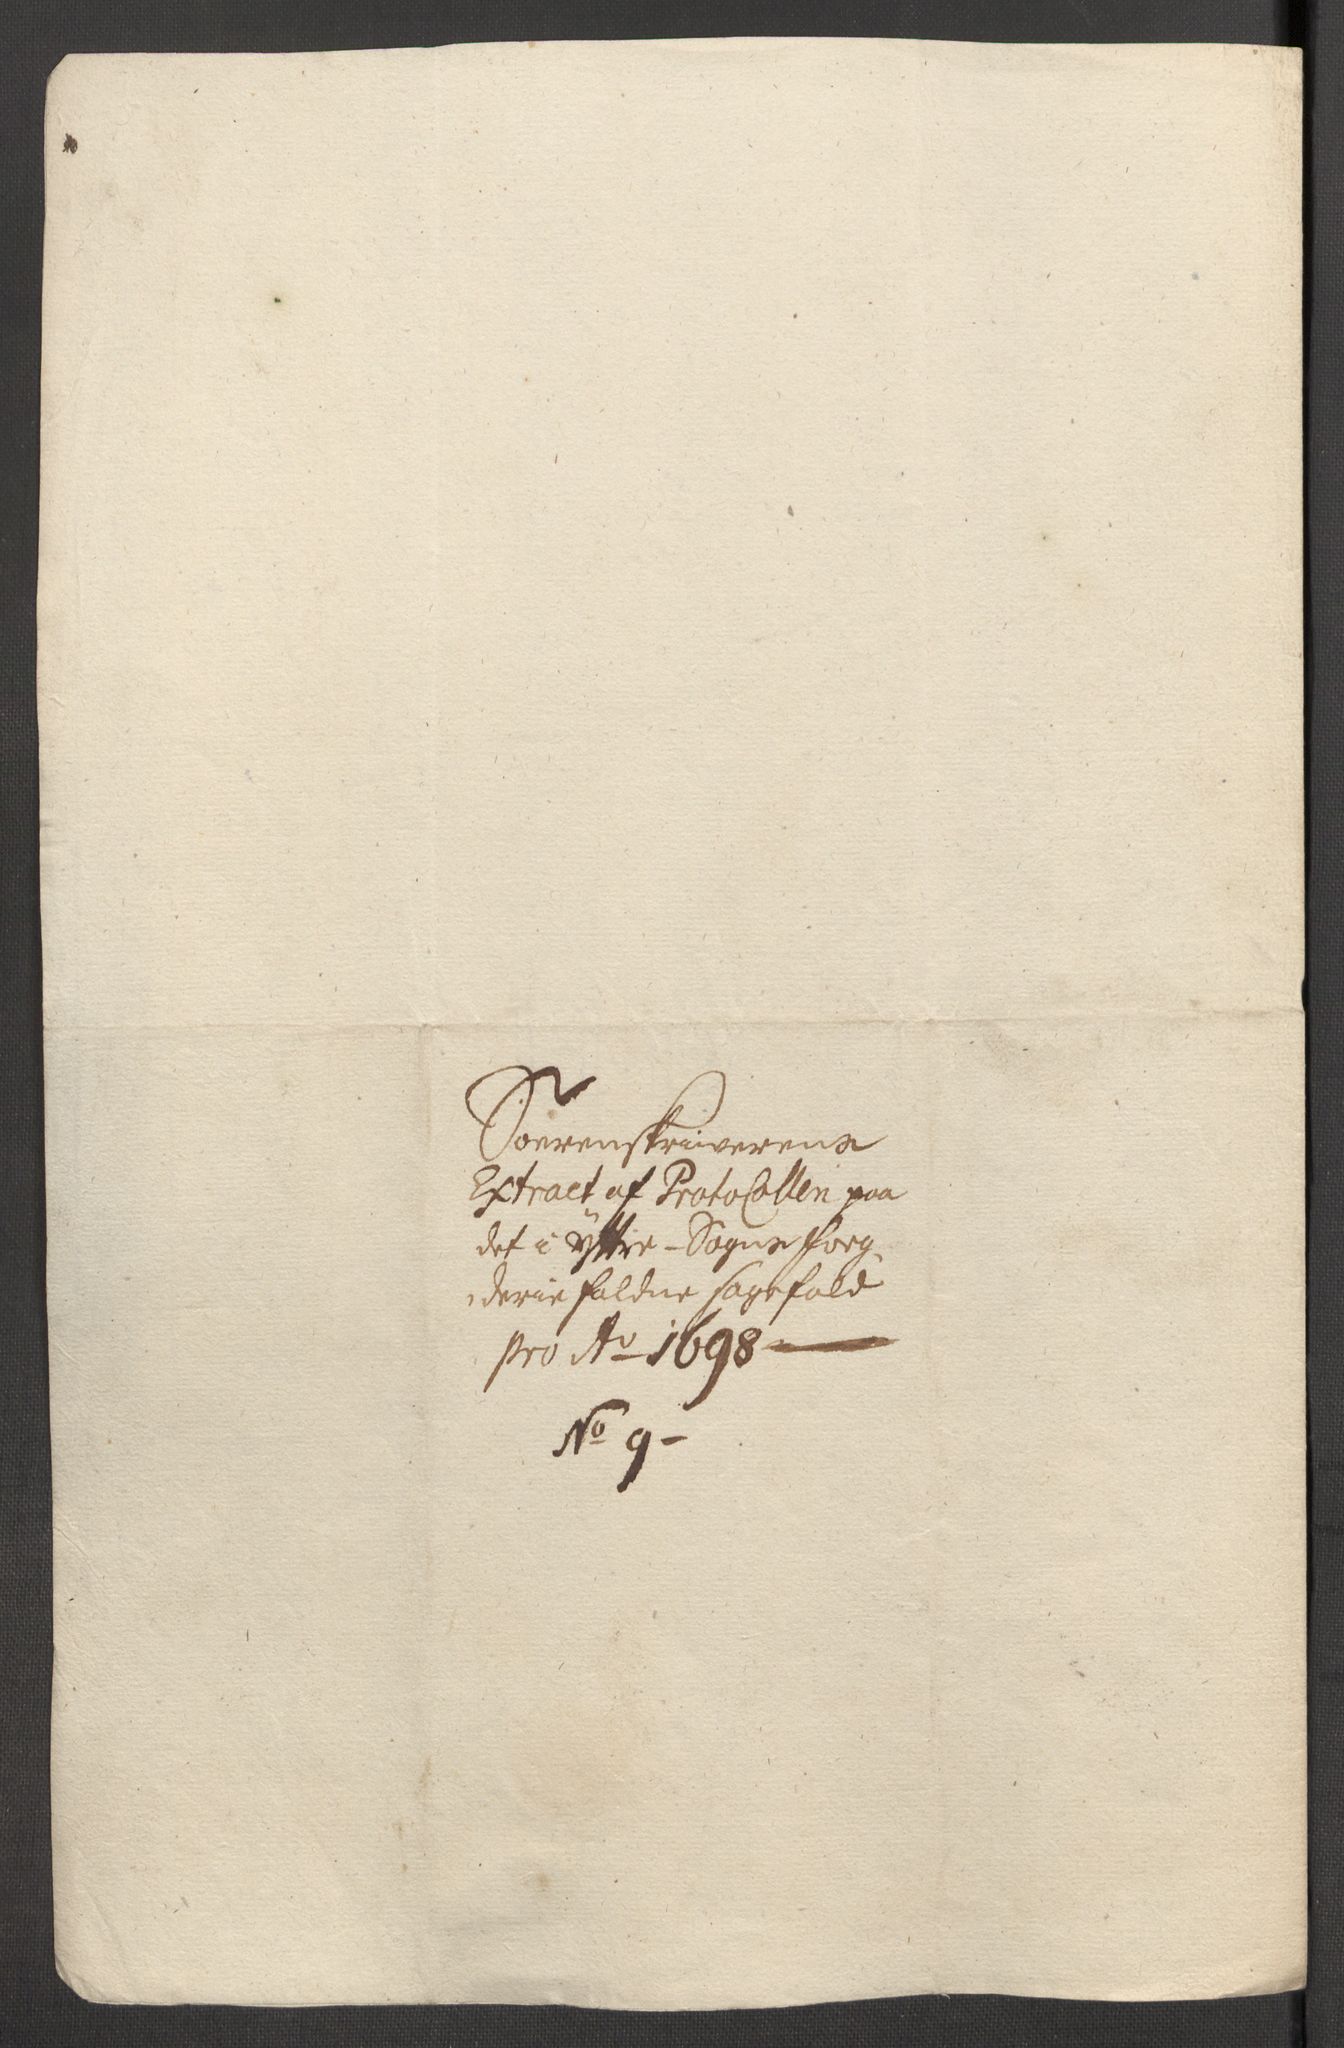 Soerenskriiverens
Extract af Protocollen paa
det i ÿttre-Sogns fforg¸
derie faldne sagefald
pro Ao 1698
No 9-